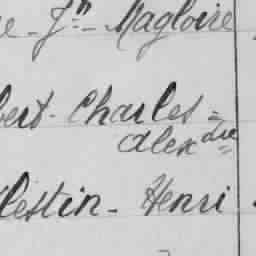 e - Jn - Magloire
bert - Charles =
Alexdre =
lestin - Henri